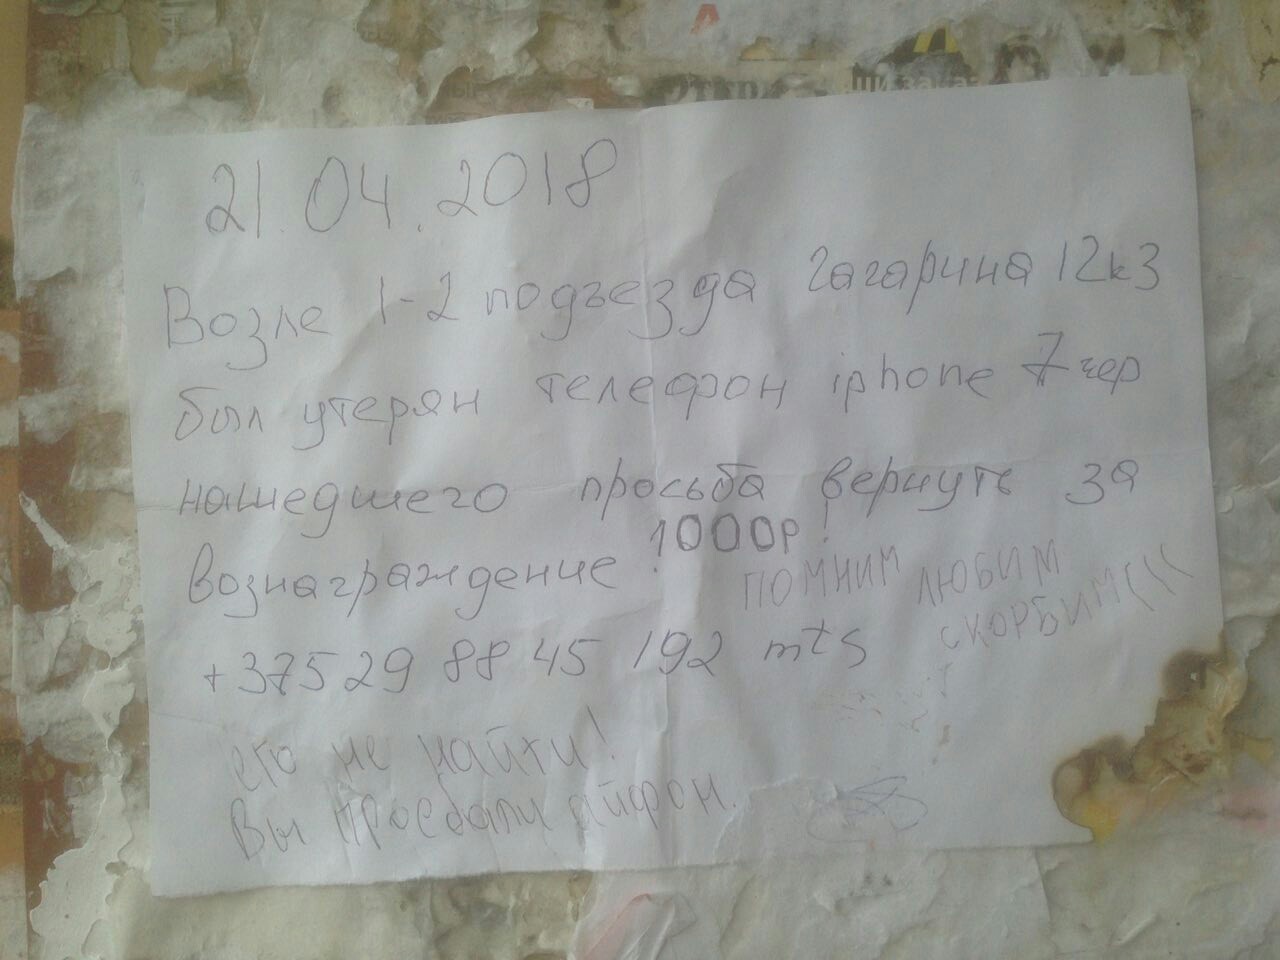 ши заказ
21.04.2018
Возле 1-2 подъезда Гагарина 12к3
был утерян телефон iphone 7 чер
нашедшего просьба вернуть за
вознаграждение! 1000р!
ПОМНИМ ЛЮБИМ
СКОРБИМ(((
+375 29 88 45 192 mts
его не найти!
Вы проебали айфон.